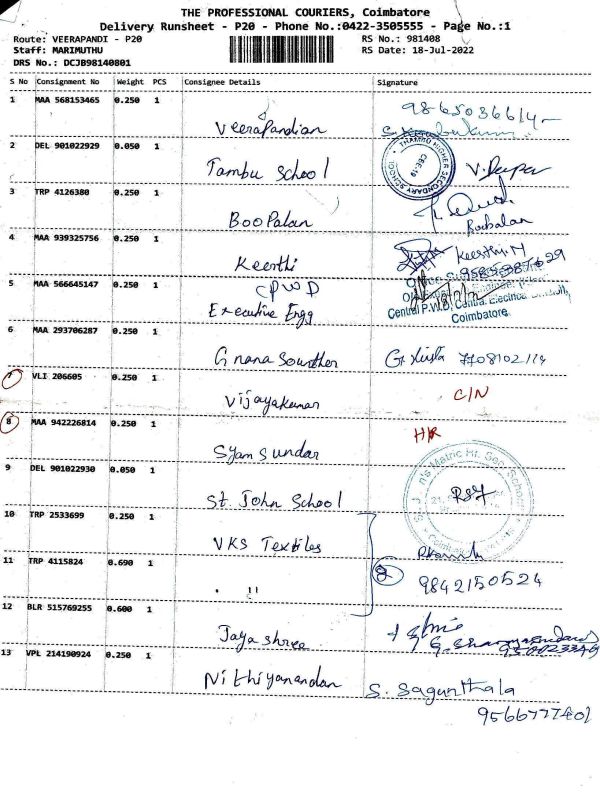 THE PROFESSIONAL COURIERS, Coimbatore
Delivery Runsheet - P20 - Phone No.:0422-3505555 - Page No.:1
Route: VEERAPANDI - P20
RS No.: 981408
Staff: MARIMUTHU
RS Date: 18-Jul-2022
DRS No.: DCJB98140801
S No Consignment No Weight PCS Consignee Details Signature
1 MAA 568153465 0.250 1
Veerapandian
2 DEL 901022929 0.050 1
THAMBU HIGHER SECONDARY SCHOOL
CBE-19
Tambu School
3 TRP 4126380 0.250 1
BooPalan
Boobalan
4 MAA 939325756 0.250 1
Keerthi
Keerthi M
5 MAA 566645147 0.250 1
CPWD
Executive Engg
Central P.W.D. Electrical
Coimbatore
6 MAA 293706287 0.250 1
Gnana Sounther
7 VLI 206605 0.250 1
Vijayakumar
C/N
8 MAA 942226814 0.250 1
Syam Sundar
9 DEL 901022930 0.050 1
St. John School
10 TRP 2533699 0.250 1
VKS Textiles
11 TRP 4115824 0.690 1
"
2
9842150524
12 BLR 515769255 0.600 1
Jaya shree
13 VPL 214190924 0.250 1
Nithiyanandan
S. Sagunthala
9566777401